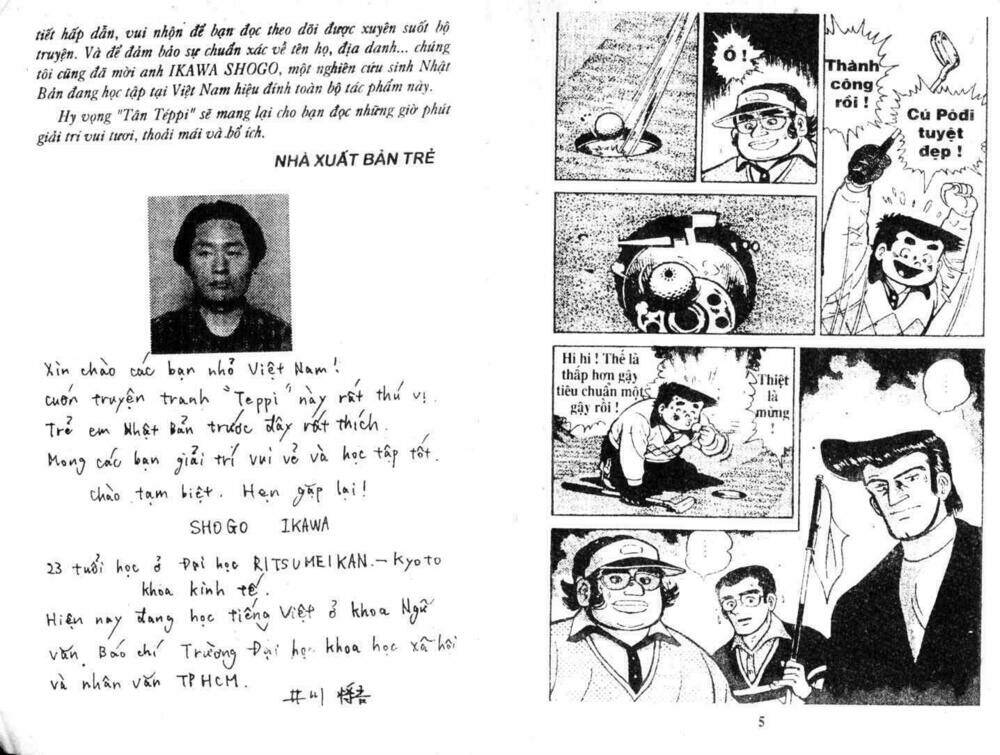 tiết hấp dẫn, vui nhộn để bạn đọc theo dõi được xuyên suốt bộ
truyện. Và để đảm bảo sự chuẩn xác về tên họ, địa danh... chúng
tôi cũng đã mời anh IKAWA SHOGO, một nghiên cứu sinh Nhật
Bản đang học tập tại Việt Nam hiệu đính toàn bộ tác phẩm này.
Hy vọng "Tân Téppi" sẽ mang lại cho bạn đọc những giờ phút
giải trí vui tươi, thoải mái và bổ ích.
NHÀ XUẤT BẢN TRẺ
Xin chào các bạn nhỏ Việt Nam!
cuốn truyện tranh "Teppi" này rất thú vị.
Trẻ em Nhật Bản trước đây rất thích.
Mong các bạn giải trí vui vẻ và học tập tốt.
chào tạm biệt. Hẹn gặp lại!
SHOGO IKAWA
23 tuổi học ở Đại học RITSUMEIKAN. – Kyoto
khoa kinh tế.
Hiện nay đang học tiếng Việt ở khoa Ngữ
văn Báo chí Trường Đại học khoa học xã hội
và nhân văn TPHCM.
井川
Ồ !
Thành
công
rồi !
Cú Pớđi
tuyệt
đẹp !
Hi hi ! Thế là
thấp hơn gậy
tiêu chuẩn một
gậy rồi !
Thiệt
là
mừng
!
...
...
5